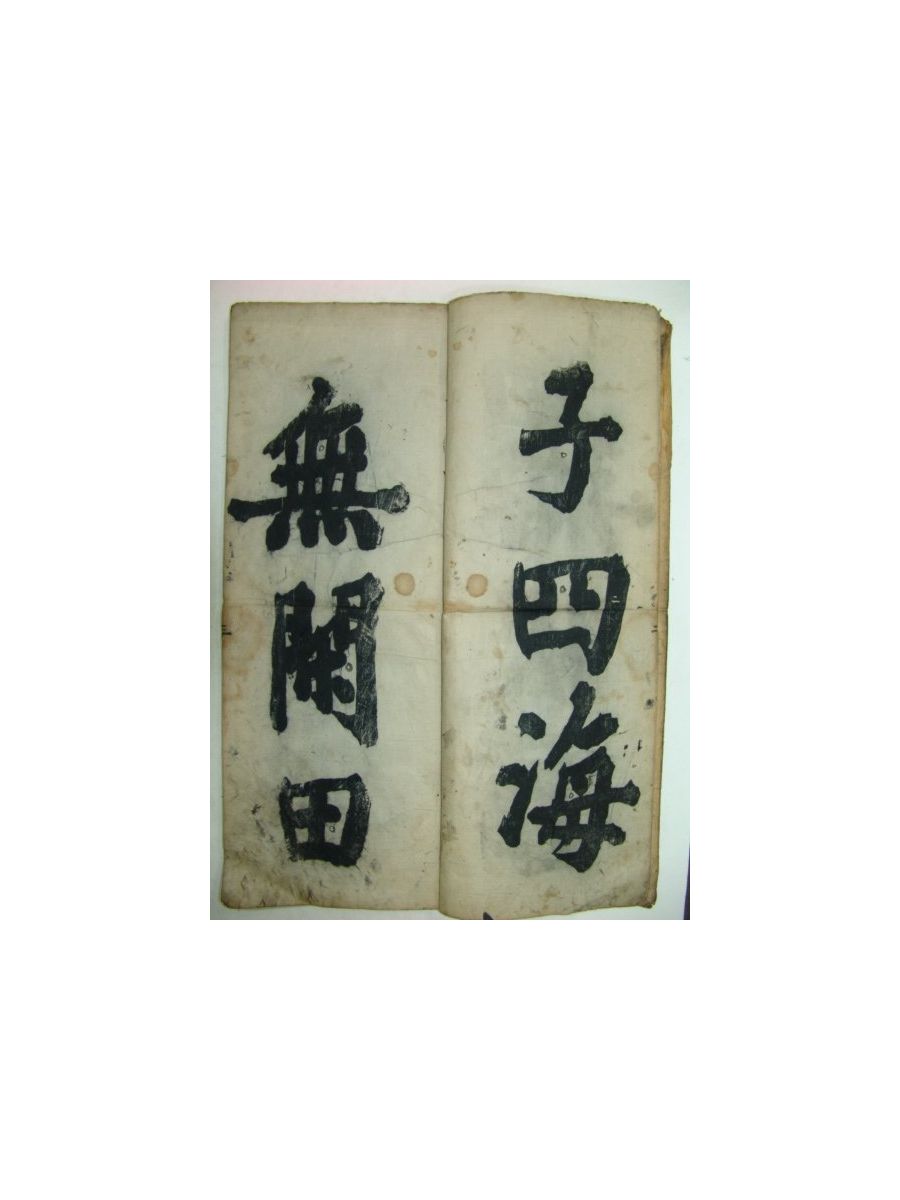 子四海
無閑田